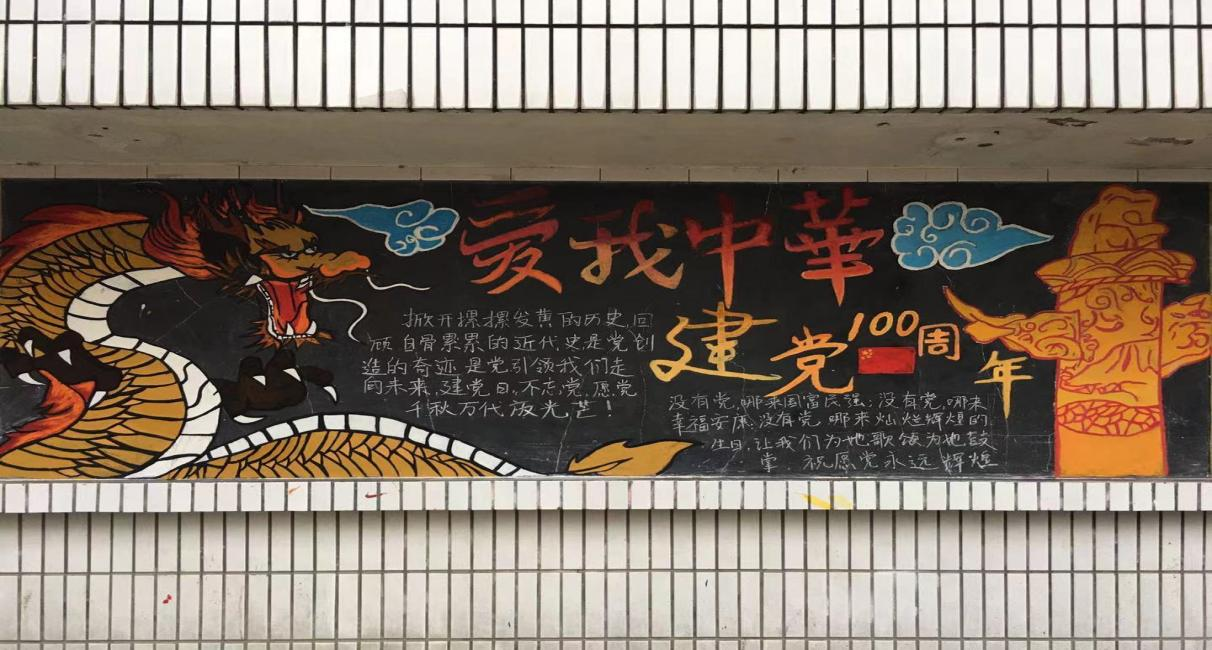 爱我中華
建党100周年
掀开摞摞发黄的历史,回
顾自骨累累的近代史是党创
造的奇迹是党引领我们走
向未来,建党日,不忘党,愿党
千秋万代放光芒!
没有党,哪来国富民强;没有党,哪来
幸福安康;没有党 哪来灿烂辉煌的
生日,让我们为她歌颂为她鼓
掌 祝愿党永远辉煌